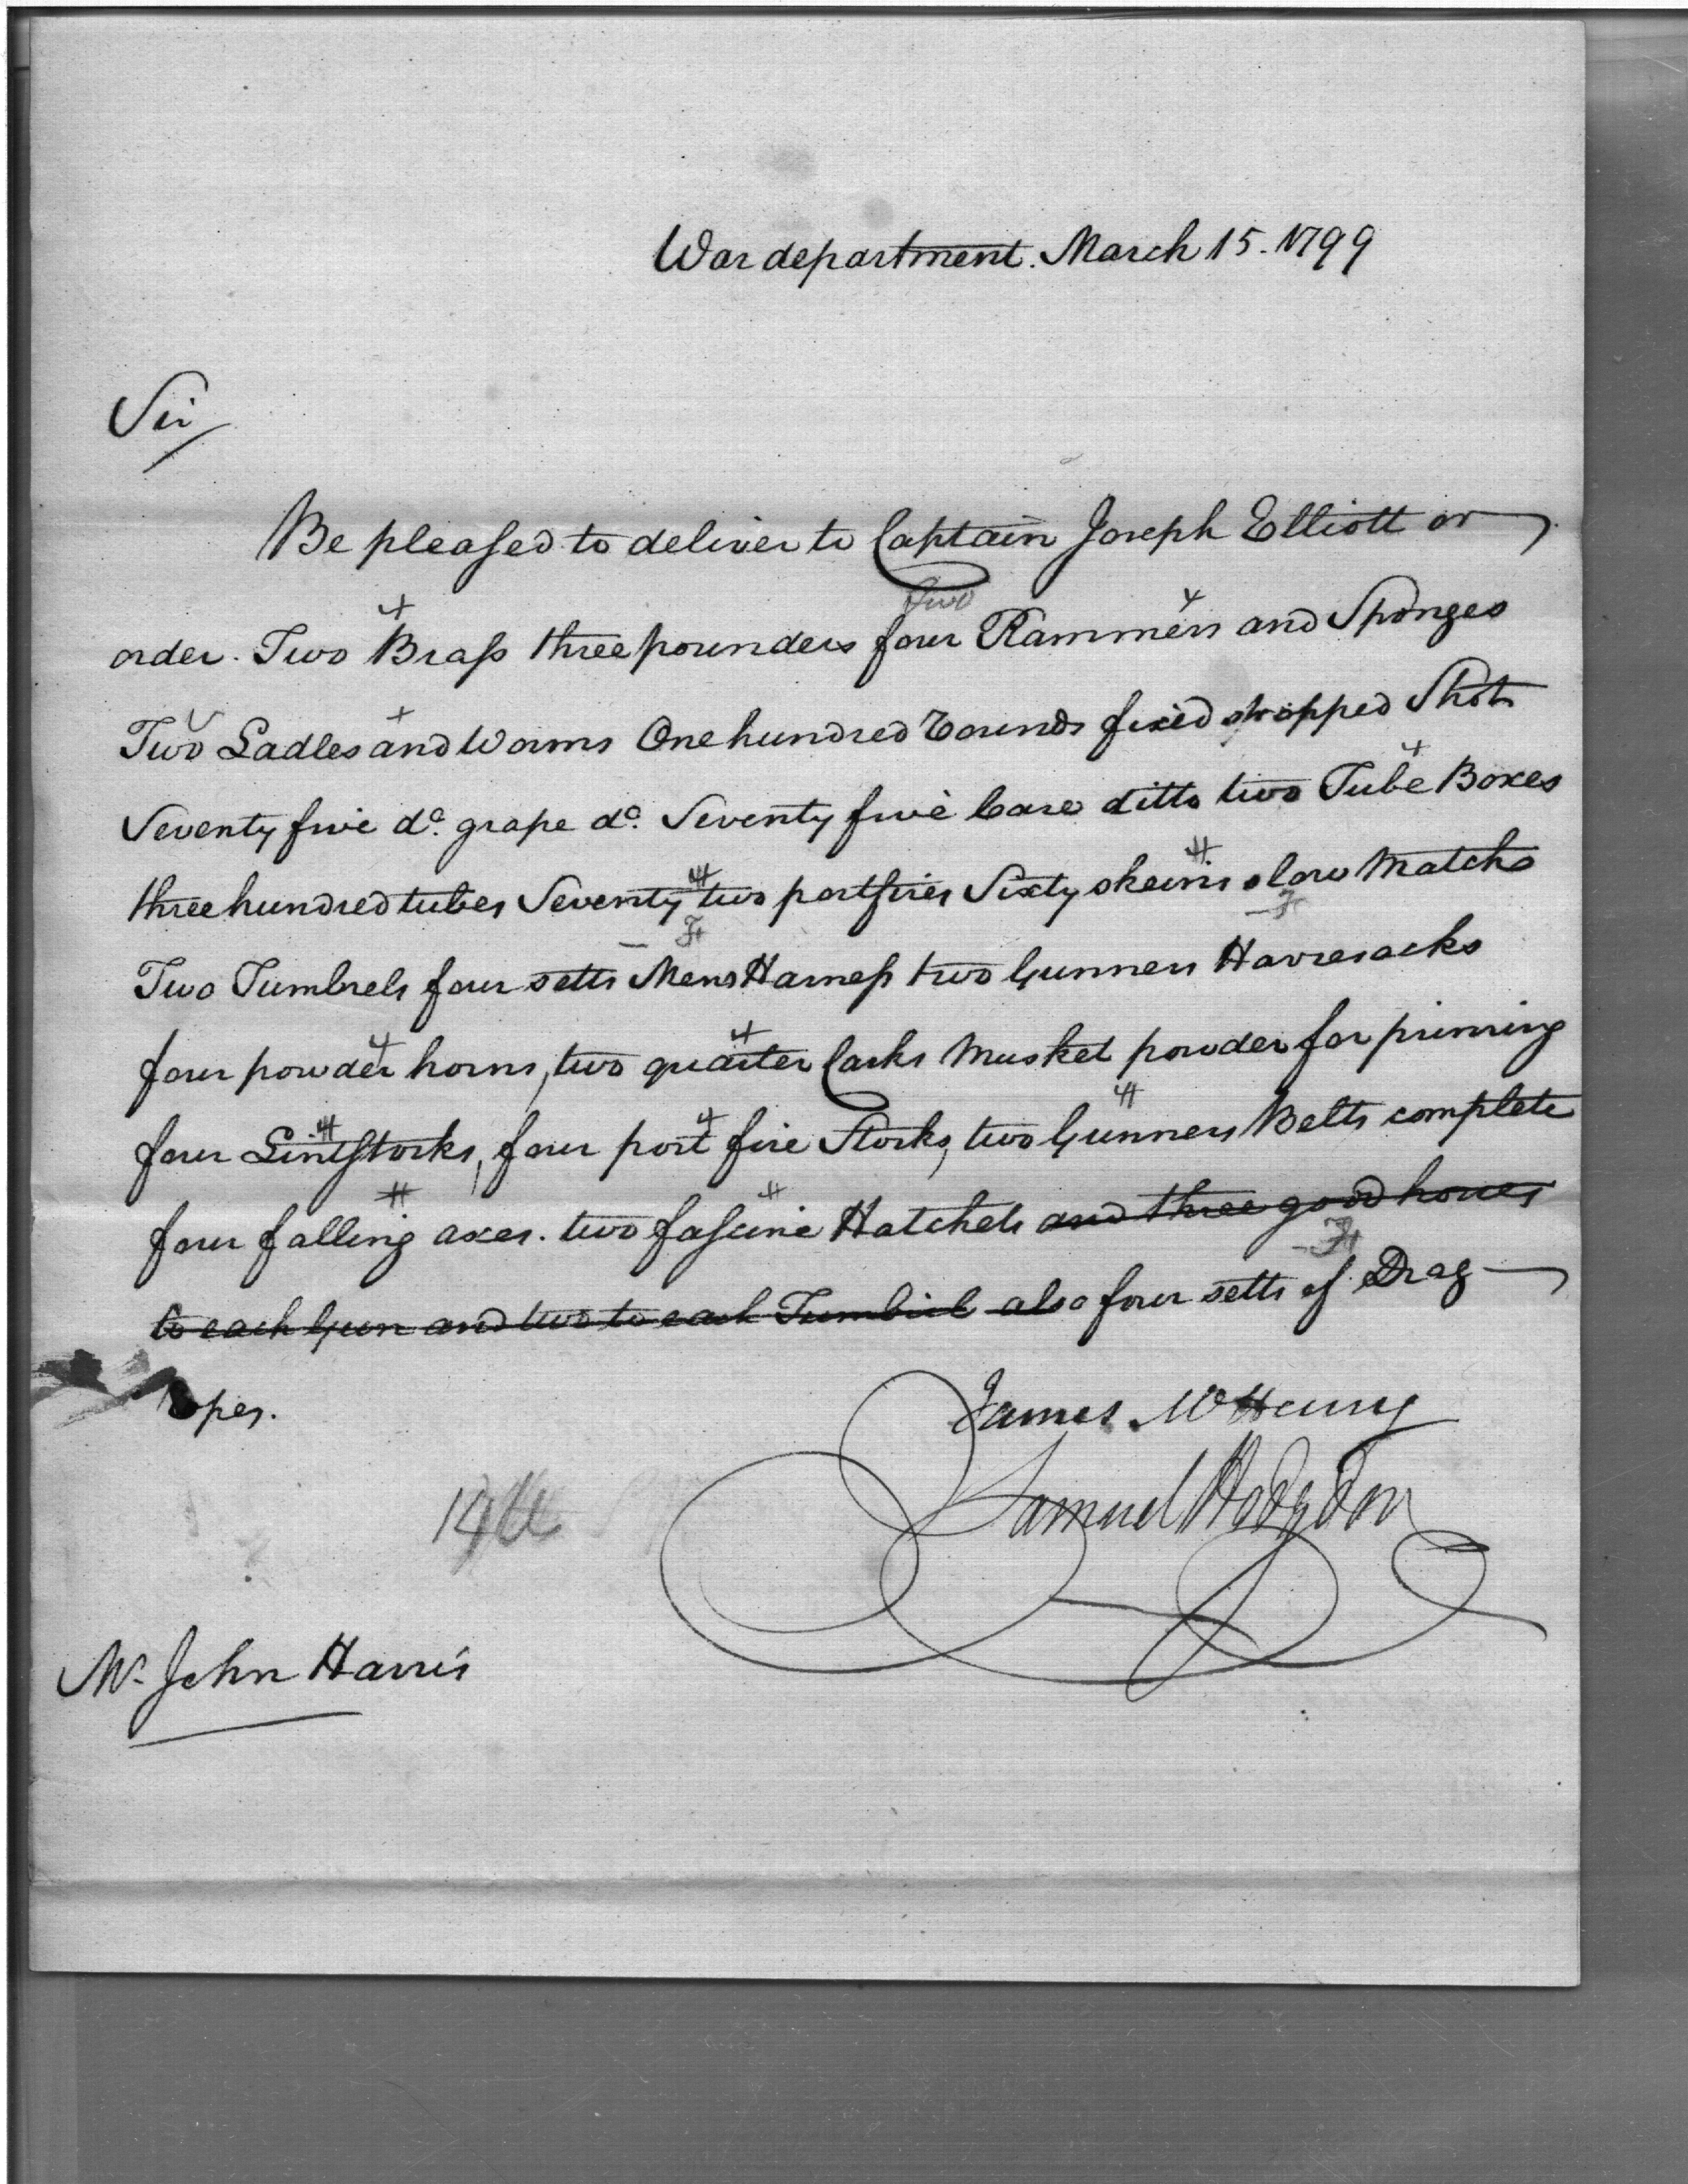 War department. March 15. 1799
Sir
Be pleased to deliver to Captain Joseph Elliott or
two
order. Two Brass three pounders four Rammers and Sponges
Two Ladles and Worms One hundred rounds fixed strapped Shot
Seventy five do. grape do. Seventy five Case ditto two Tube Boxes
three hundred tubes Seventy two portfires Sixty skeins slow Match
Two Tumbrels four setts Mens Harness two Gunners Havresacks
four powder horns, two quarter Casks Musket powder for priming
four Lintstocks, four port fire Stocks, two Gunners Belts complete
four falling axes. two fascine Hatchets and three good horses
to each Gun and two to each Tumbril also four setts of Drag
Ropes.
James McHenry
Samuel Hodgdon
Mr. John Harris